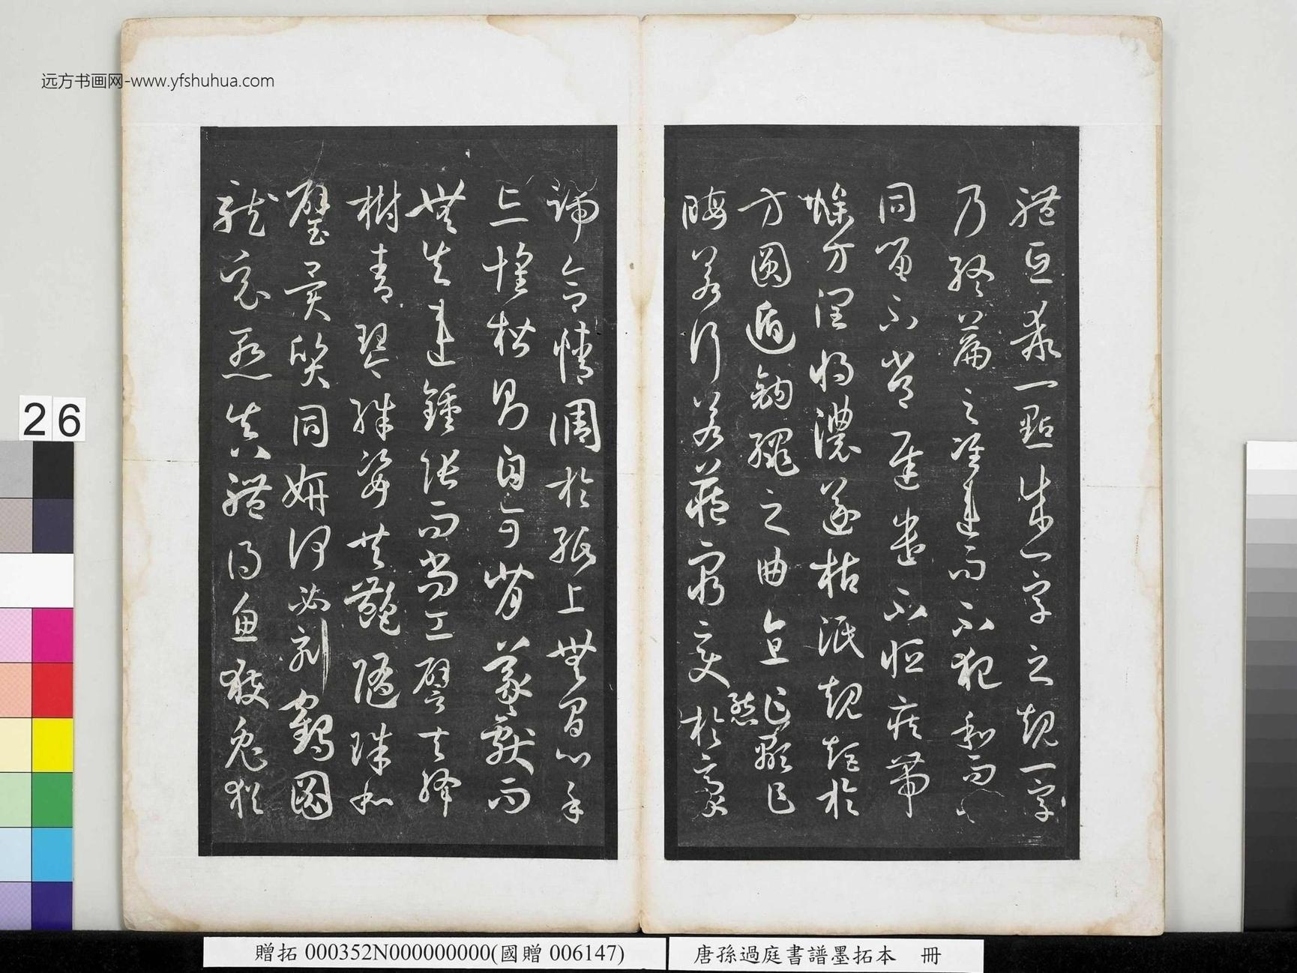 远方书画网-www.yfshuhua.com
體互乖一點成一字之規一字
乃終篇之准違而不犯和而不
同留不常遲遣不恒疾帶
燥方潤將濃遂枯泯規矩於
方圓遁鉤繩之曲直乍顯乍
晦若行若藏窮變態於毫
端合情調於紙上無間心手
忘懷楷則自可背羲獻而
無失違鍾張而尚工譬夫絳
樹青琴殊姿共艷隋珠和
璧異質同妍何必刻鶴圖
龍竟慚真體得魚獲兔猶
26
贈拓 000352N000000000(國贈 006147)
唐孫過庭書譜墨拓本 冊